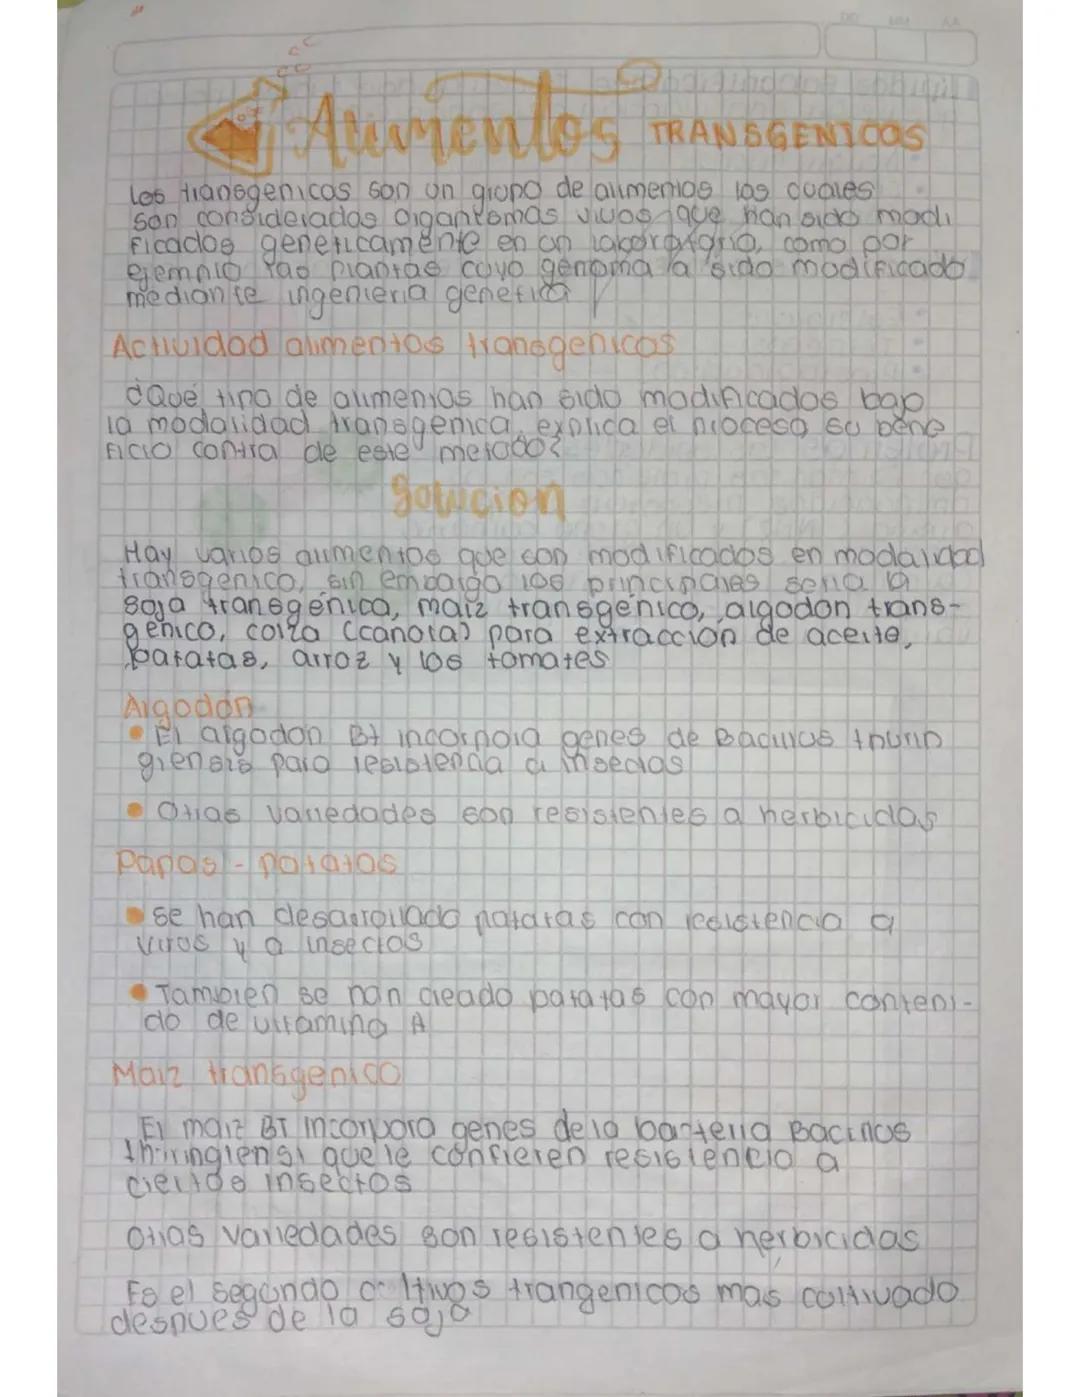 DD MM AA
Alimentos TRANSGENICOS
los transgenicos son un grupo de alimentos las cuales
son consideradas organismos vivos que han sido modi
ficados geneticamente en un laboratorio, como por
ejemplo las plantas cuyo genoma a sido modificado
mediante ingenieria genetica
Actividad alimentos transgenicos
¿Qué tipo de alimentos han sido modificados bajo
la modalidad transgenica, explica el proceso su bene
ficio contra de este metodo?
Solucion
Hay varios alimentos que son modificados en modalidad
transgenico, sin embargo los principales seria la
soja transgénica, maiz transgénico, algodon trans-
génico, colza (canola) para extracción de aceite,
patatas, arroz y los tomates
Algodón
• El algodon Bt incorpora genes de Bacillus thurin
giensis para resistencia a insectos
• Otras variedades son resistentes a herbicidas
Papas - patatas
• se han desarrollado patatas con resistencia a
virus y a insectos
• Tambien se han creado patatas con mayor conteni-
do de vitamina A
Maiz transgenico
El maiz BT incorpora genes de la bacteria Bacillus
thiringiensi que le confieren resistencia a
ciertos insectos
Otras variedades son resistentes a herbicidas
Es el segundo cultivos trangenicos mas coltivado
despues de la soja